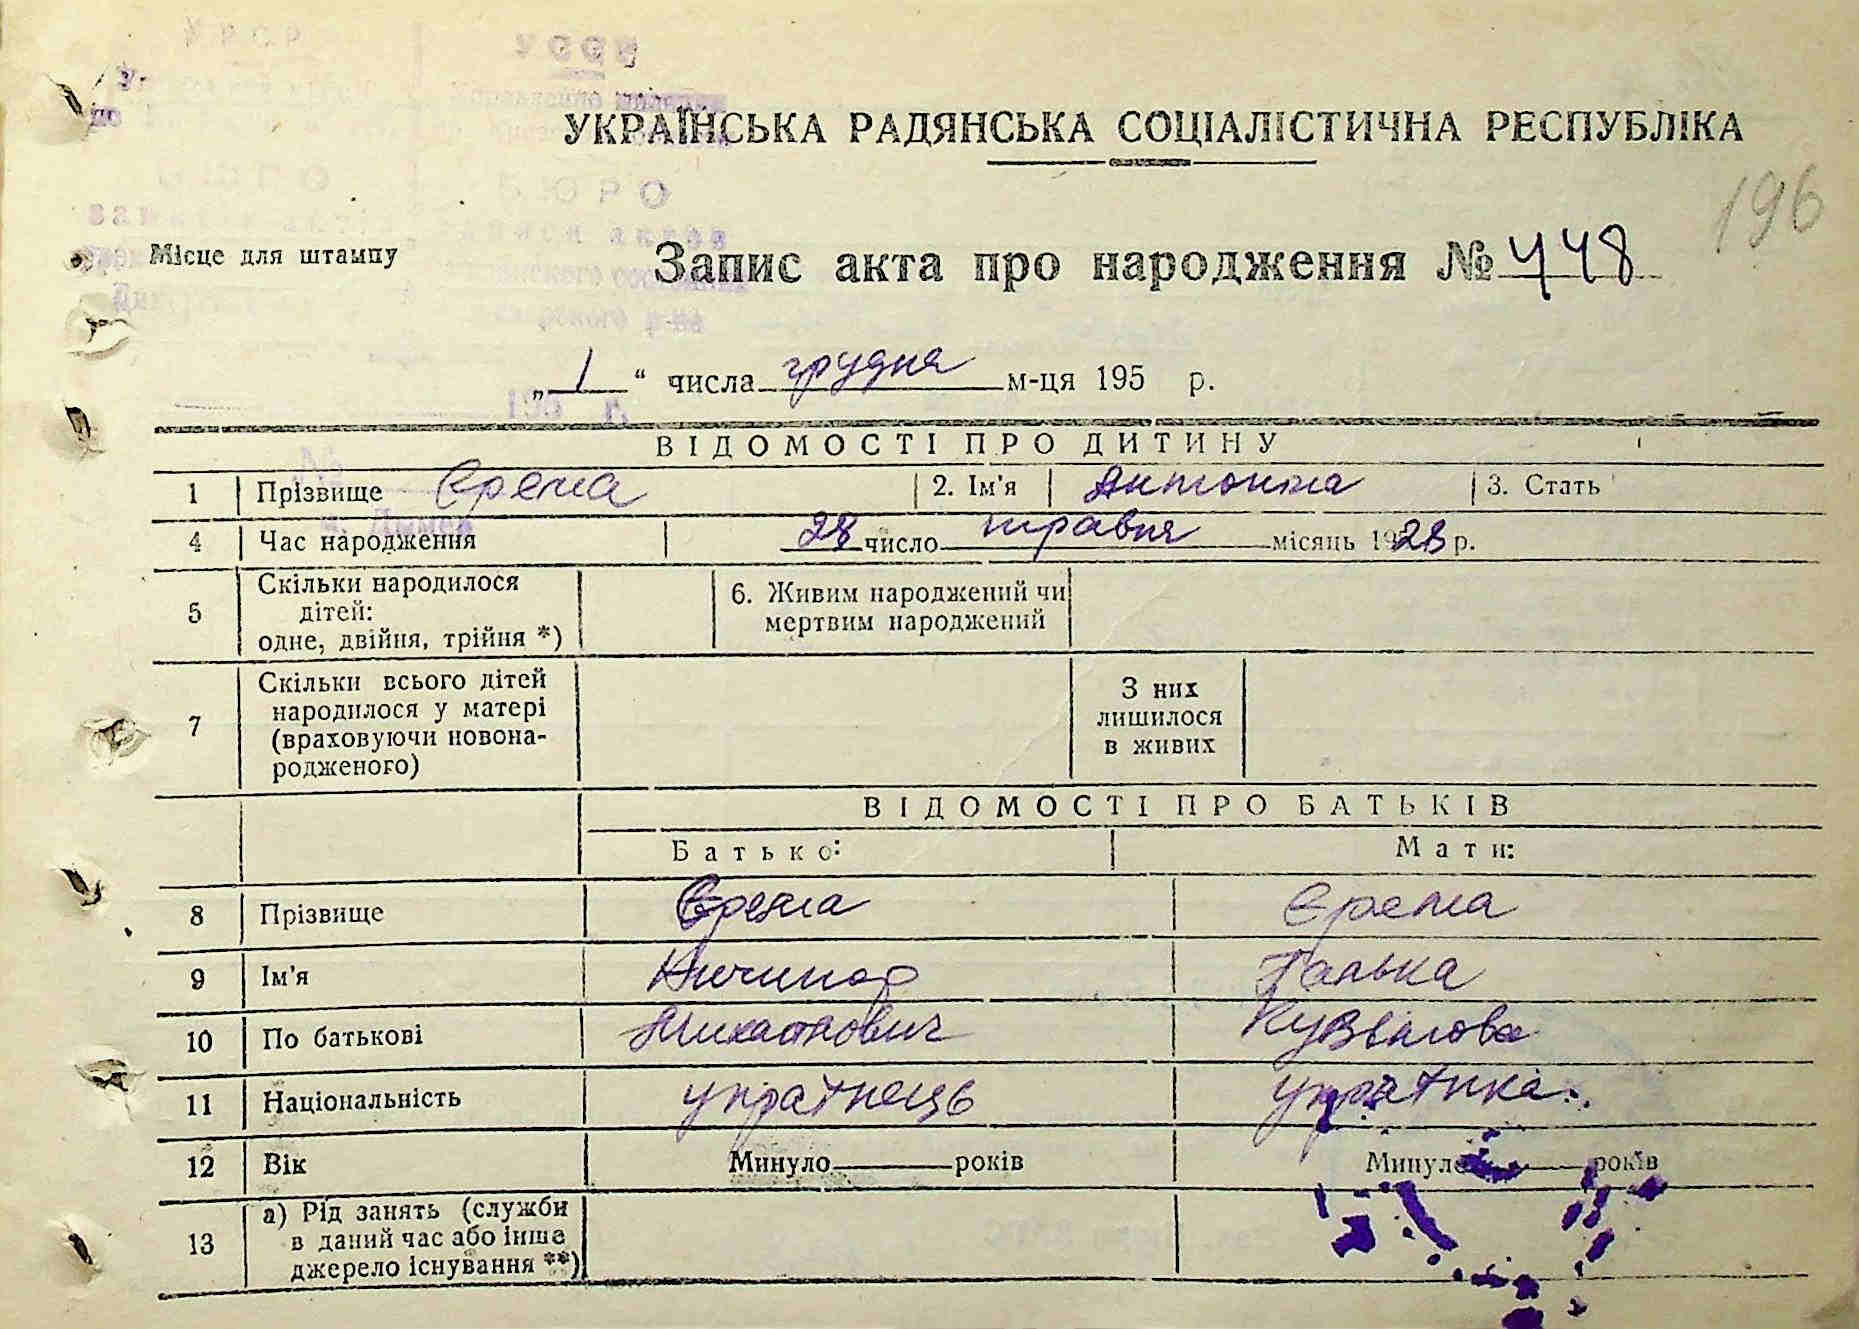 УССР
БЮРО
УКРАЇНСЬКА РАДЯНСЬКА СОЦІАЛІСТИЧНА РЕСПУБЛІКА
196
Місце для штампу
Запис акта про народження № 448
„ 1 “ числа грудня м-ця 195 р.
ВІДОМОСТІ ПРО ДИТИНУ
1 Прізвище Єрема 2. Ім'я Антоніна 3. Стать
4 Час народження 28 число травня місяць 1928 р.
5 Скільки народилося дітей: одне, двійня, трійня *) 6. Живим народжений чи мертвим народжений
7 Скільки всього дітей народилося у матері (враховуючи новона-родженого) З них лишилося в живих
ВІДОМОСТІ ПРО БАТЬКІВ
Батько: Мати:
8 Прізвище Єрема Єрема
9 Ім'я Ничипор Ганька
10 По батькові Михайлович Кузьмова
11 Національність українець українка
12 Вік Минуло років Минуло років
13 а) Рід занять (служби в даний час або інше джерело існування **)